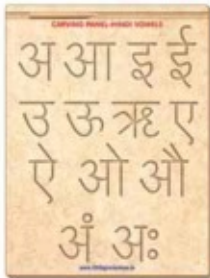 CARVING PANEL-HINDI VOWELS
अ आ इ ई
उ ऊ ऋ ए
ऐ ओ औ
अं अः